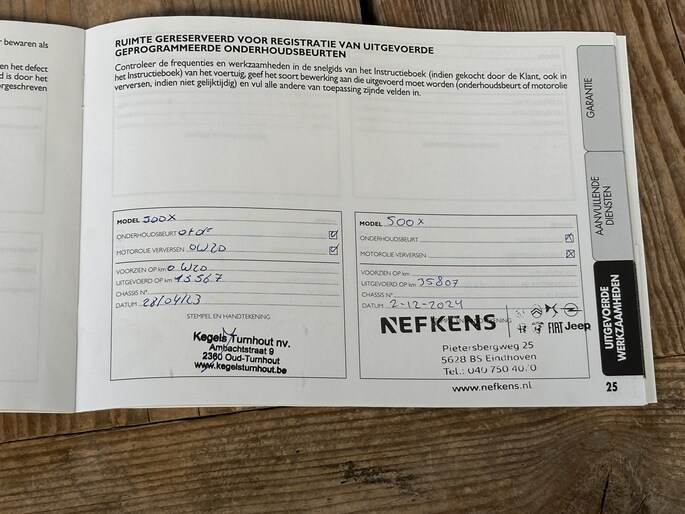 r bewaren als
en het defect
d is door het
orgeschreven
RUIMTE GERESERVEERD VOOR REGISTRATIE VAN UITGEVOERDE
GEPROGRAMMEERDE ONDERHOUDSBEURTEN
Controleer de frequenties en werkzaamheden in de snelgids van het Instructieboek (indien gekocht door de Klant, ook in
het Instructieboek) van het voertuig, geef het soort bewerking aan die uitgevoerd moet worden (onderhoudsbeurt of motorolie
verversen, indien niet gelijktijdig) en vul alle andere van toepassing zijnde velden in.
MODEL 500X
ONDERHOUDSBEURT
MOTOROLIE VERVERSEN 0W20
VOORZIEN OP km 0W20
UITGEVOERD OP km 15567
CHASSIS N°
DATUM 28/04/23
STEMPEL EN HANDTEKENING
Kegels Turnhout nv.
Ambachtstraat 9
2360 Oud-Turnhout
www.kegelsturnhout.be
MODEL 500X
ONDERHOUDSBEURT
MOTOROLIE VERVERSEN
VOORZIEN OP km
UITGEVOERD OP km 35807
CHASSIS N°
DATUM 2-12-2024
STEMPEL EN HANDTEKENING
NEFKENS
FIAT Jeep
Pietersbergweg 25
5628 BS Eindhoven
Tel.: 040 750 40
www.nefkens.nl
GARANTIE
AANVULLENDE
DIENSTEN
UITGEVOERDE
WERKZAAMHEDEN
25